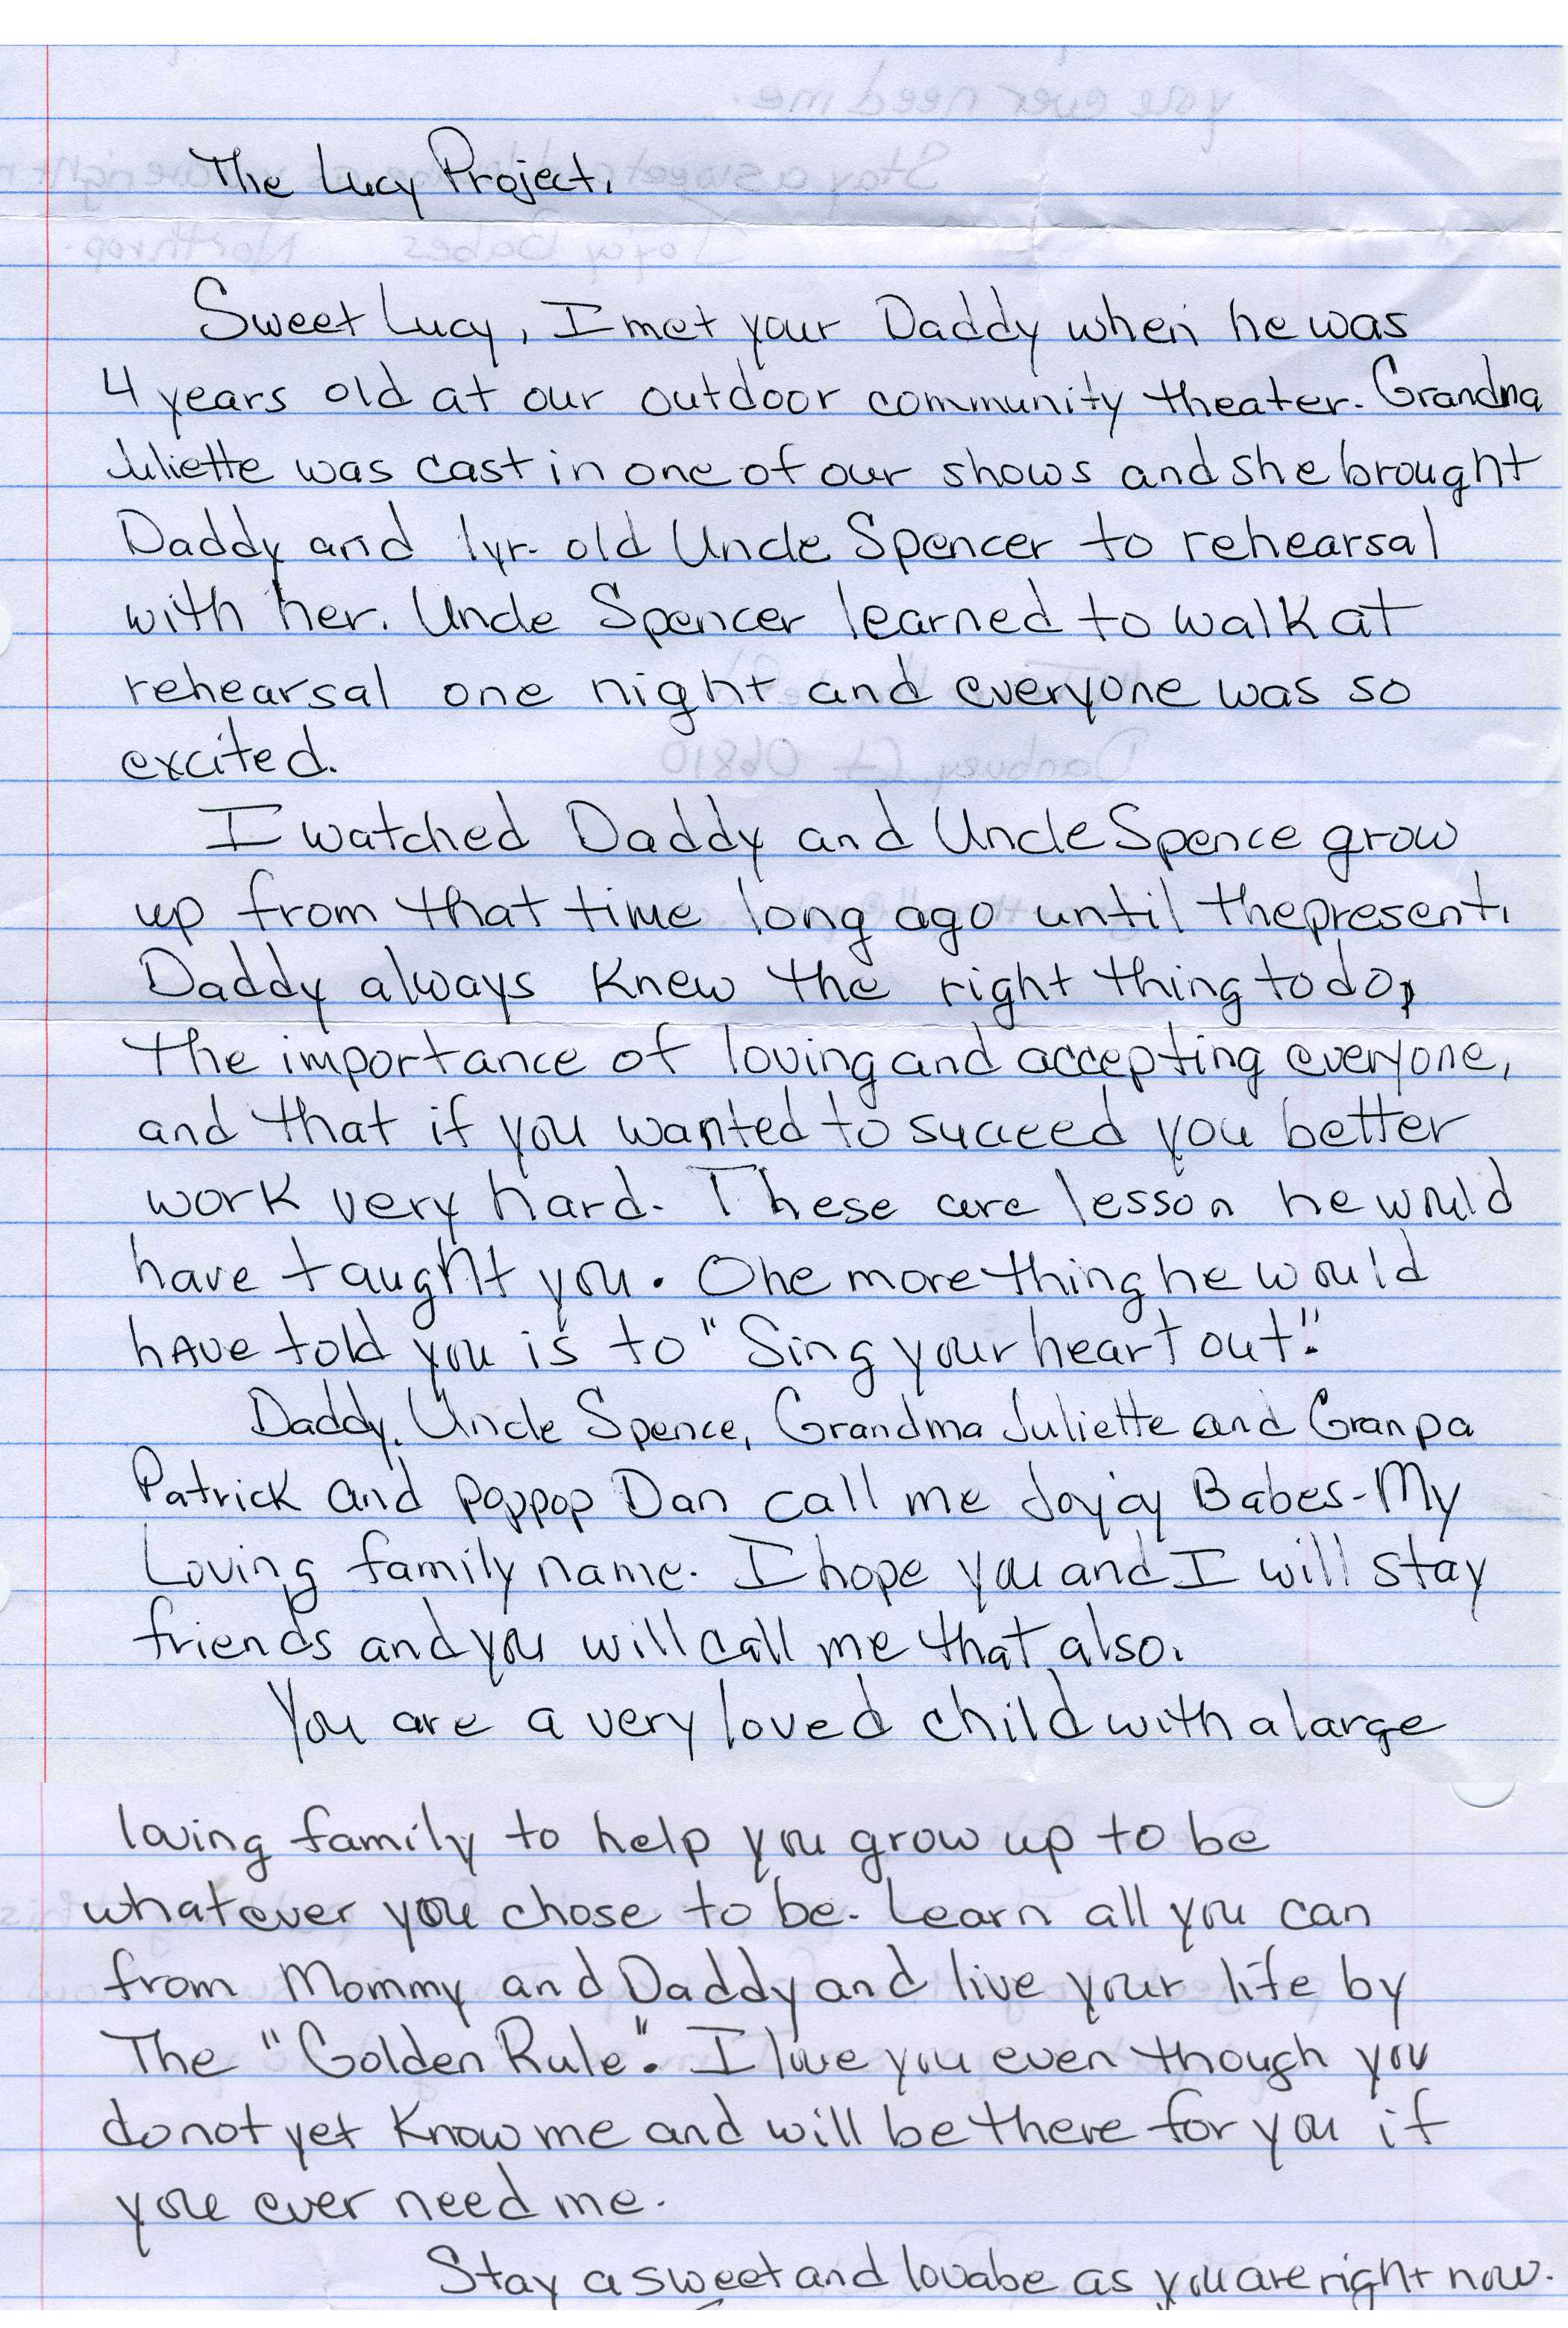 The Lucy Project.
Sweet Lucy, I met your Daddy when he was
4 years old at our outdoor community theater. Grandma
Juliette was cast in one of our shows and she brought
Daddy and 1yr. old Uncle Spencer to rehearsal
with her. Uncle Spencer learned to walk at
rehearsal one night and everyone was so
excited.
I watched Daddy and Uncle Spence grow
up from that time long ago until the present.
Daddy always knew the right thing to do,
the importance of loving and accepting everyone,
and that if you wanted to succeed you better
work very hard. These are lesson he would
have taught you. One more thing he would
have told you is to "Sing your heart out".
Daddy, Uncle Spence, Grandma Juliette and Granpa
Patrick and Poppop Dan call me Joyjoy Babes-My
Loving family name. I hope you and I will stay
friends and you will call me that also.
You are a very loved child with a large
loving family to help you grow up to be
whatever you chose to be. Learn all you can
from Mommy and Daddy and live your life by
The "Golden Rule". I love you even though you
do not yet know me and will be there for you if
you ever need me.
Stay a sweet and lovabe as you are right now.